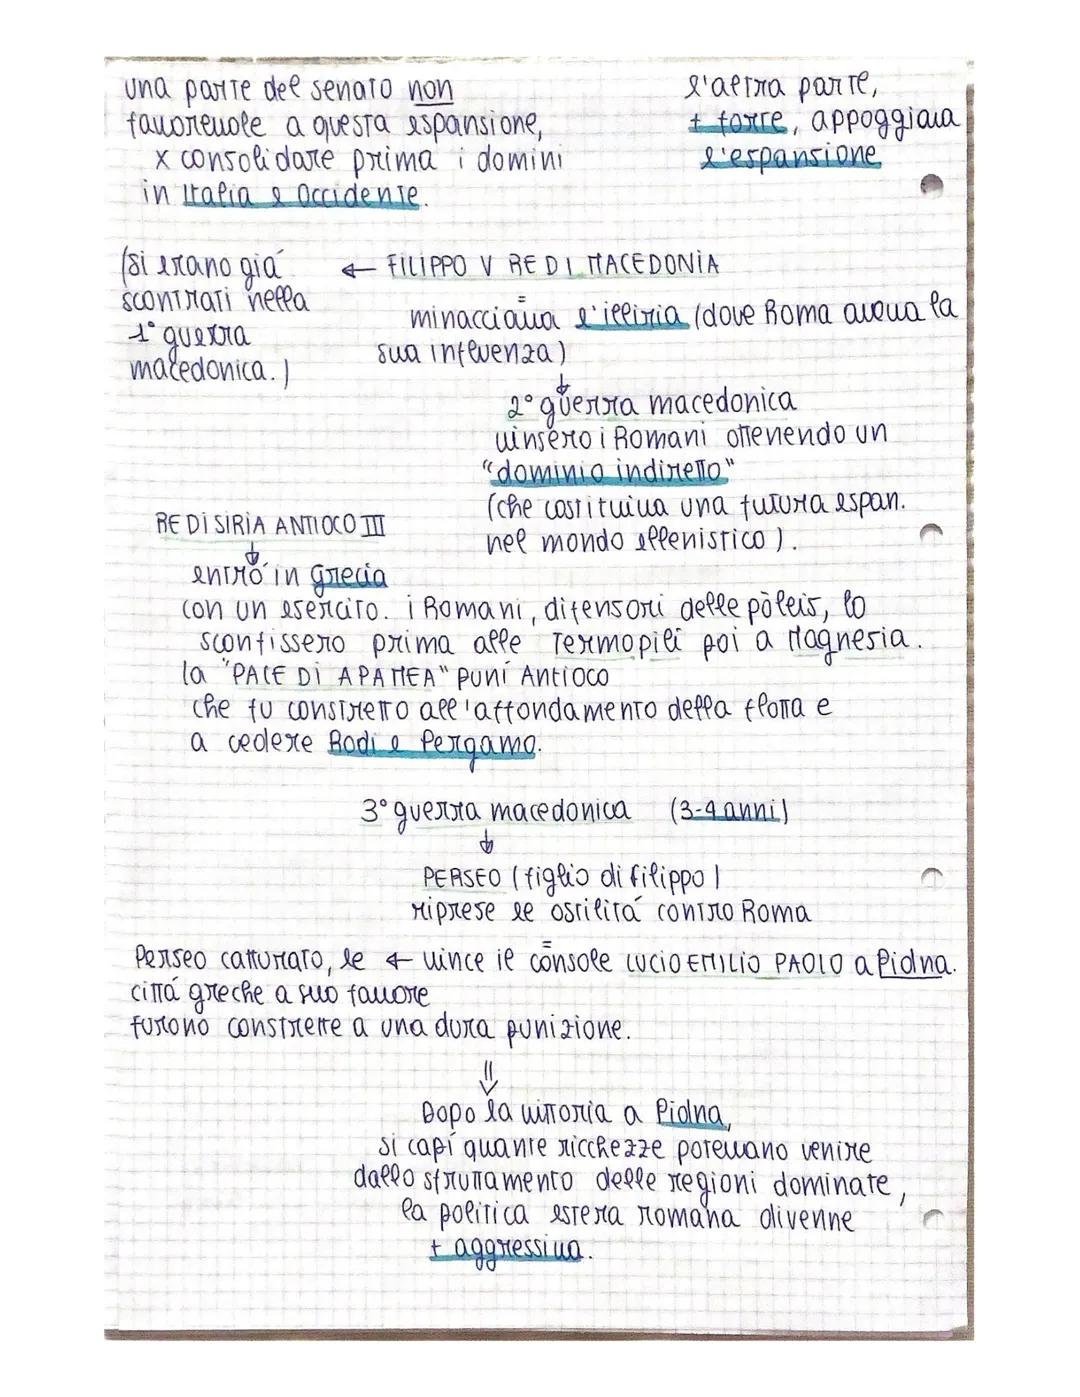 una parte del senato non
favorevole a questa espansione,
x consolidare prima i domini
in Italia e Occidente.
l'altra parte,
+ forte, appoggiava
l'espansione
(si erano giá
scontrati nella
1° guerra
macedonica.)
← FILIPPO V RE DI MACEDONIA
minacciava l'illiria (dove Roma aveva la
sua influenza)
↓
2° guerra macedonica
vinsero i Romani ottenendo un
"dominio indiretto"
(che costituiva una futura espan.
nel mondo ellenistico).
RE DI SIRIA ANTIOCO III
↓
entró in grecia
con un esercito. i Romani, difensori delle pòleis, lo
sconfissero prima alle Termopili poi a Magnesia.
la "PACE DI APAMEA" puní Antioco
che fu constretto all'affondamento della flotta e
a cedere Rodi e Pergamo.
3° guerra macedonica (3-4 anni)
↓
PERSEO (figlio di filippo)
riprese le ostilitá contro Roma
Perseo catturato, le ← vince il console LUCIO EMILIO PAOLO a Pidna.
cittá greche a suo favore
furono constrette a una dura punizione.
⇓
Dopo la vittoria a Pidna,
si capí quante ricchezze potevano venire
dallo sfruttamento delle regioni dominate,
la politica estera romana divenne
+ aggressiva.